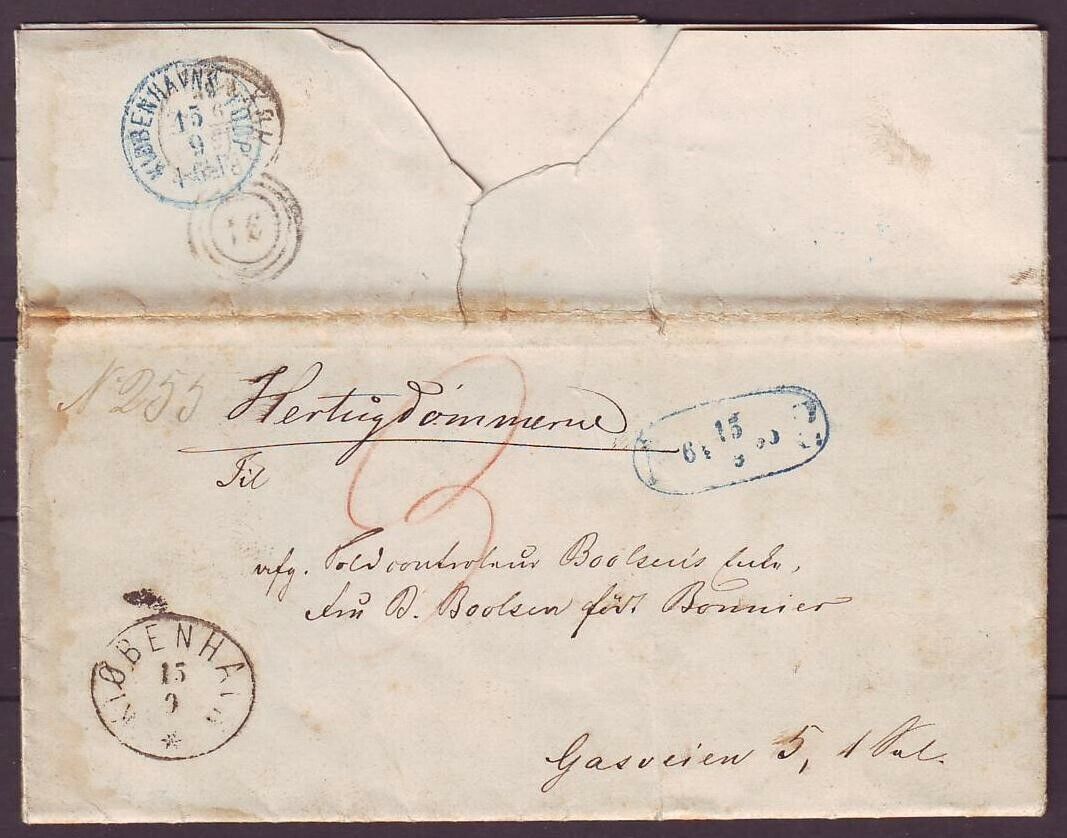 KIØBENHAVNS
15
9
16
N 255
Hertugdömmerne
15
64
3
Til
afg. Toldcontroleur Boolsen's
Fru B. Boolsen född Bonnier
KIØBENHAVN
15
9
Gasveien 5, 1 Sal.